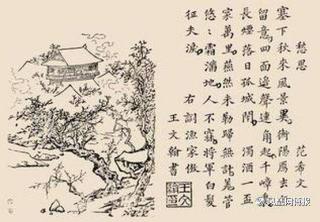 愁思 范希文
塞下秋來風景異衡陽雁去無
留意四面邊聲連角起千嶂裏
長煙落日孤城閉 濁酒一盃
家萬里燕然未勒歸無計羌管
悠〻霜滿地人不寐將軍白髮
征夫淚 右調漁家傲
王文翰書